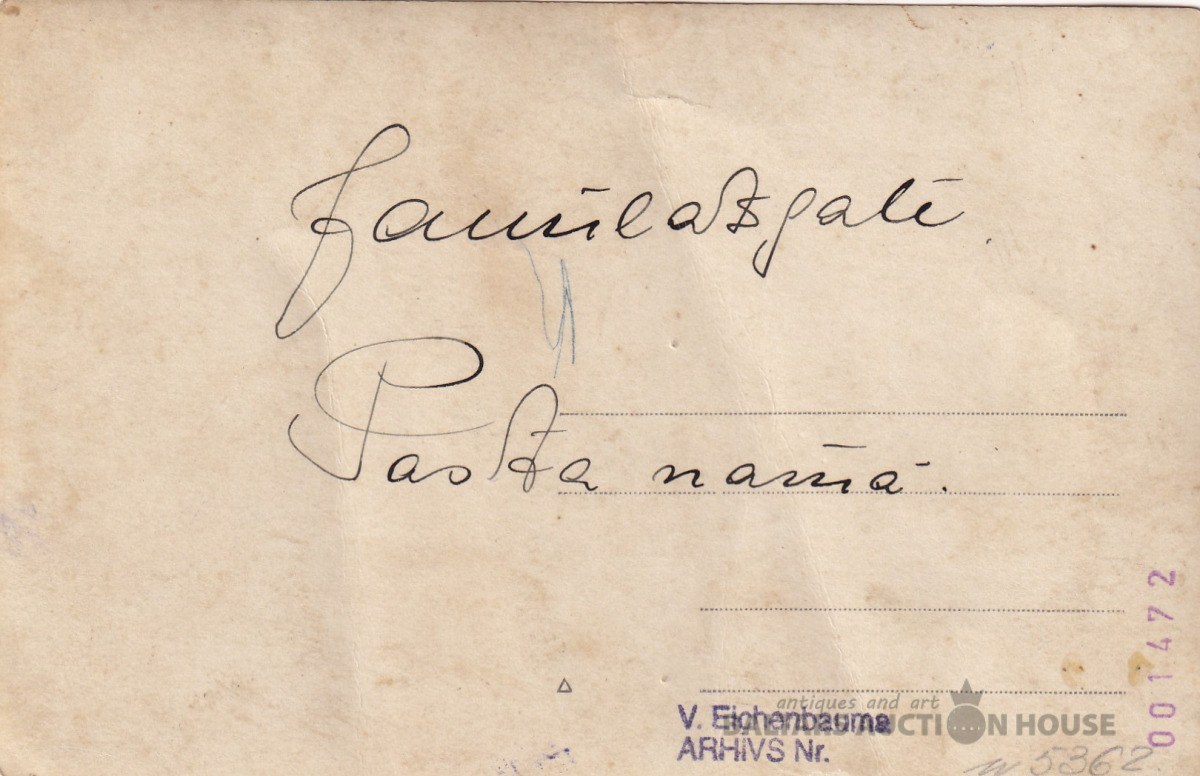 Jaunlatgalē.
Pasta namā.
antiques and art
AUCTION HOUSE
V. Eichenbauma
ARHIVS Nr.
5362.
001472